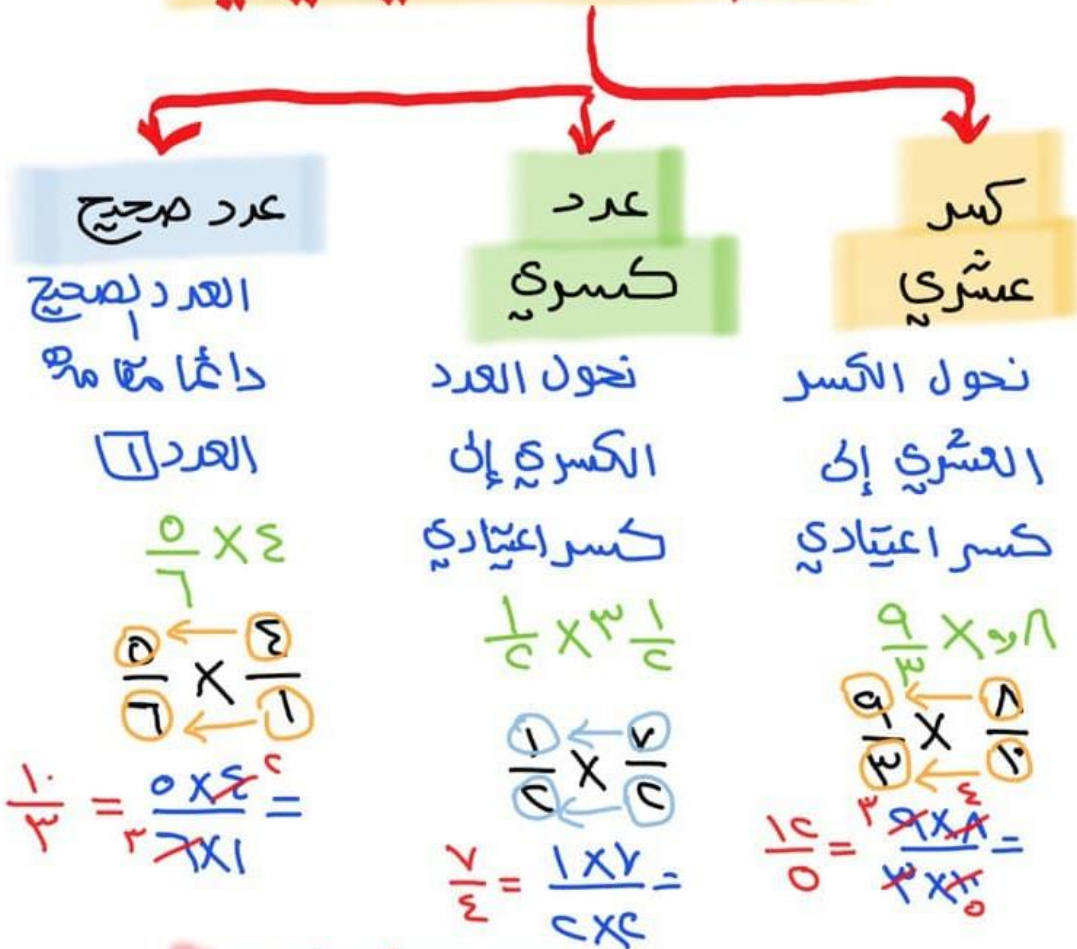 كسر
عشري
نحول الكسر
العشري إلى
كسر اعتيادي
٠,٨ × ٩/٣
٨/١٠ × ٩/٣
= ٨×٩ / ١٠×٣ = ١٢/٥
٤ ٣
٥
عدد
كسري
نحول العدد
الكسري إلى
كسر اعتيادي
٣ ١/٢ × ١/٢
٧/٢ × ١/٢
= ٧×١ / ٢×٢ = ٧/٤
عدد صحيح
العدد الصحيح
دائمًا مقامه
العدد ١
٤ × ٥/٦
٤/١ × ٥/٦
= ٤×٥ / ١×٦ = ١٠/٣
٢
٣